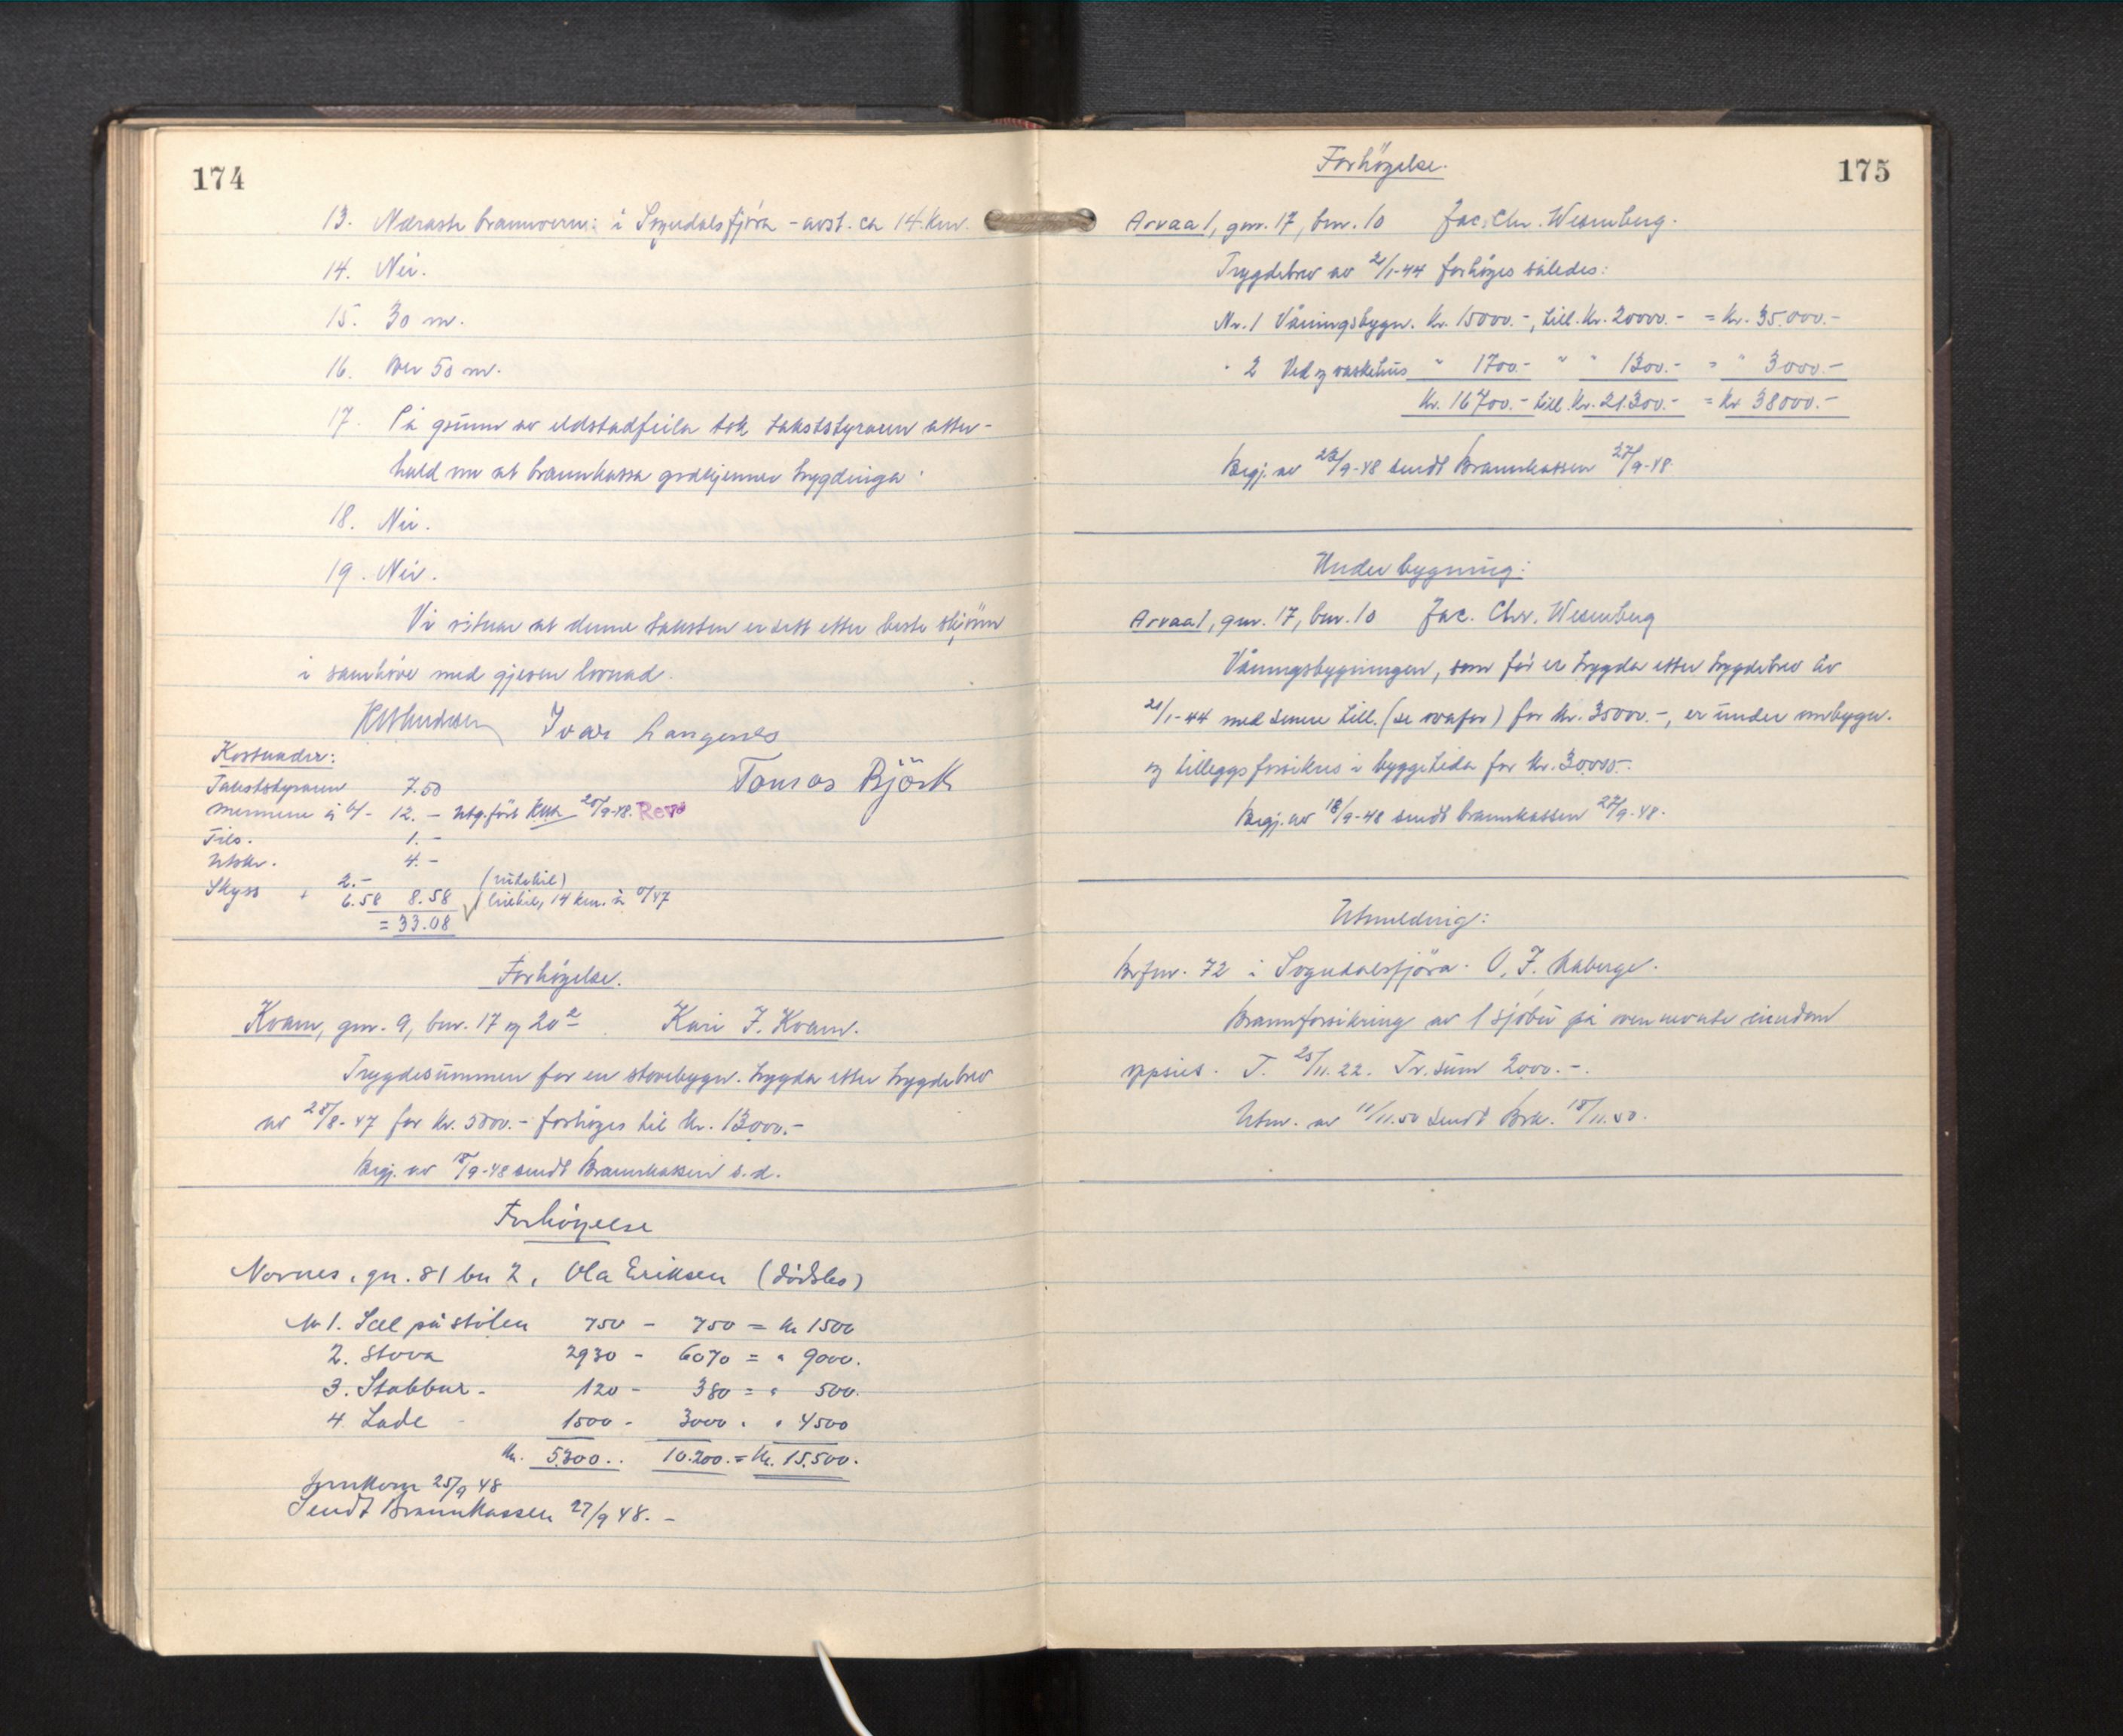 174
13. Næraste brannvern: i Sogndalsfjöra - avst. ca 14 km.
14. Nei.
15. 30 m.
16. Over 50 m.
17. På grunn av eldstadfeila tok takststyraren atter-
hald um at brannkassa godkjenner trygdinga.
18. Nei.
19. Nei.
Vi vitnar at denne taksten er sett etter beste skjönn
i samhöve med gjeven lovnad.
Ivar Langenes
Kostnader:
Tomas Björk
Takststyraren 7.50
Mennene à 6/- 12.- Utg.fört 25/9-48.
Tils. 1.-
Utskr. 4.-
Skyss + 2.- (rutebil)
6.58 8.58 lilebil, 14 km. à 0/47
= 33.08
Forhögelse.
Kvam, gnr. 9, bnr. 17 og 20² Kari J. Kvam.
Trygdesummen for en stovebygn. trygda etter trygdebrev
av 28/8-47 for kr. 5000.- forhöges til kr. 13000.-
Begj. av 18/9-48 sendt Brannkassen s.d.
Forhögelse
Nornes, gn. 81 bn 2, Ola Eriksen (dödsbo)
Nr 1. Sel på stölen 750 - 750 = kr 1500
2. Stova 2930 - 6070 = " 9000.
3. Stabbur - 120 - 380 = " 500.
4. Lade - 1500 - 3000 " " 4500
Kr. 5300.. 10.200. = Kr. 15.500.
Innkom 25/9 48
Sendt Brannkassen 27/9 48. -
175
Forhögelse.
Arvaal, gnr. 17, bnr. 10 Jac. Chr. Wesenberg.
Trygdebrev av 21/1-44 forhöges således:
Nr. 1 Våningsbygn. kr. 15000.-, till. kr. 20000.- = kr. 35.000.-
" 2 Ved og vaskehus " 1700.- " " 1300.- = " 3000.-
Kr. 16700.- till. kr. 21.300.- = kr 38000.-
Begj. av 23/9-48 sendt Brannkassen 27/9-48.
Under bygning:
Arvaal, gnr. 17, bnr. 10 Jac. Chr. Wesenberg
Våningsbygningen, som för er trygda etter trygdebrev av
21/1-44 med senere till. (se ovafor) for kr. 35000.-, er under ombygn.
og tilleggsforsikres i byggetida for kr. 30000.-
Begj. av 18/9-48 sendt brannkassen 27/9-48.
Utmelding:
Brfnr. 72 i Sogndalsfjöra. O. J. Aaberge.
Brannforsikring av 1 sjöbu på ovennevnte eiendom
oppsies. T. 25/11.22. Tr.sum 2000.-.
Utm. av 11/11.50 sendt Brk. 18/11.50.